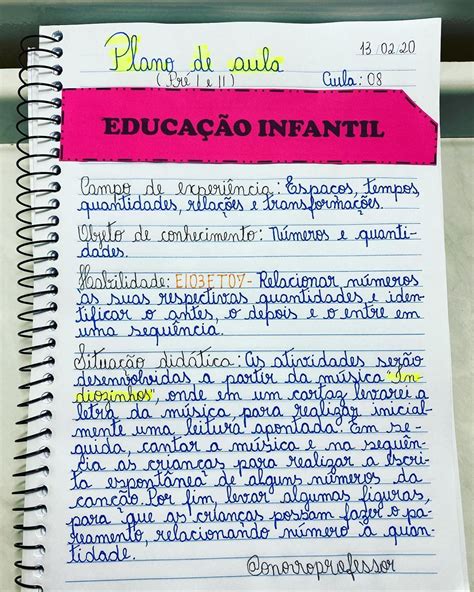 Plano de aula 13/02/20
(Pré I e II) Aula: 08
EDUCAÇÃO INFANTIL
Campo de experiência: Espaços, tempos,
quantidades, relações e transformações.
Objeto de conhecimento: Números e quanti-
dades.
Habilidade: EI03ET07- Relacionar números
as suas respectivas quantidades e iden-
tificar o antes, o depois e o entre em
uma sequência.
Situação didática: As atividades serão
desenvolvidas a partir da música "In-
diozinhos", onde em um cartaz levarei a
letra da música, para realizar inicial-
mente uma leitura apontada. Em se-
guida, cantar a música e na sequên-
cia as crianças para realizar a escri-
ta espontânea de alguns números da
canção. Por fim levar algumas figuras,
para que as crianças possam fazer o pa-
reamento, relacionando número à quan-
tidade.
@onoivoprofessor